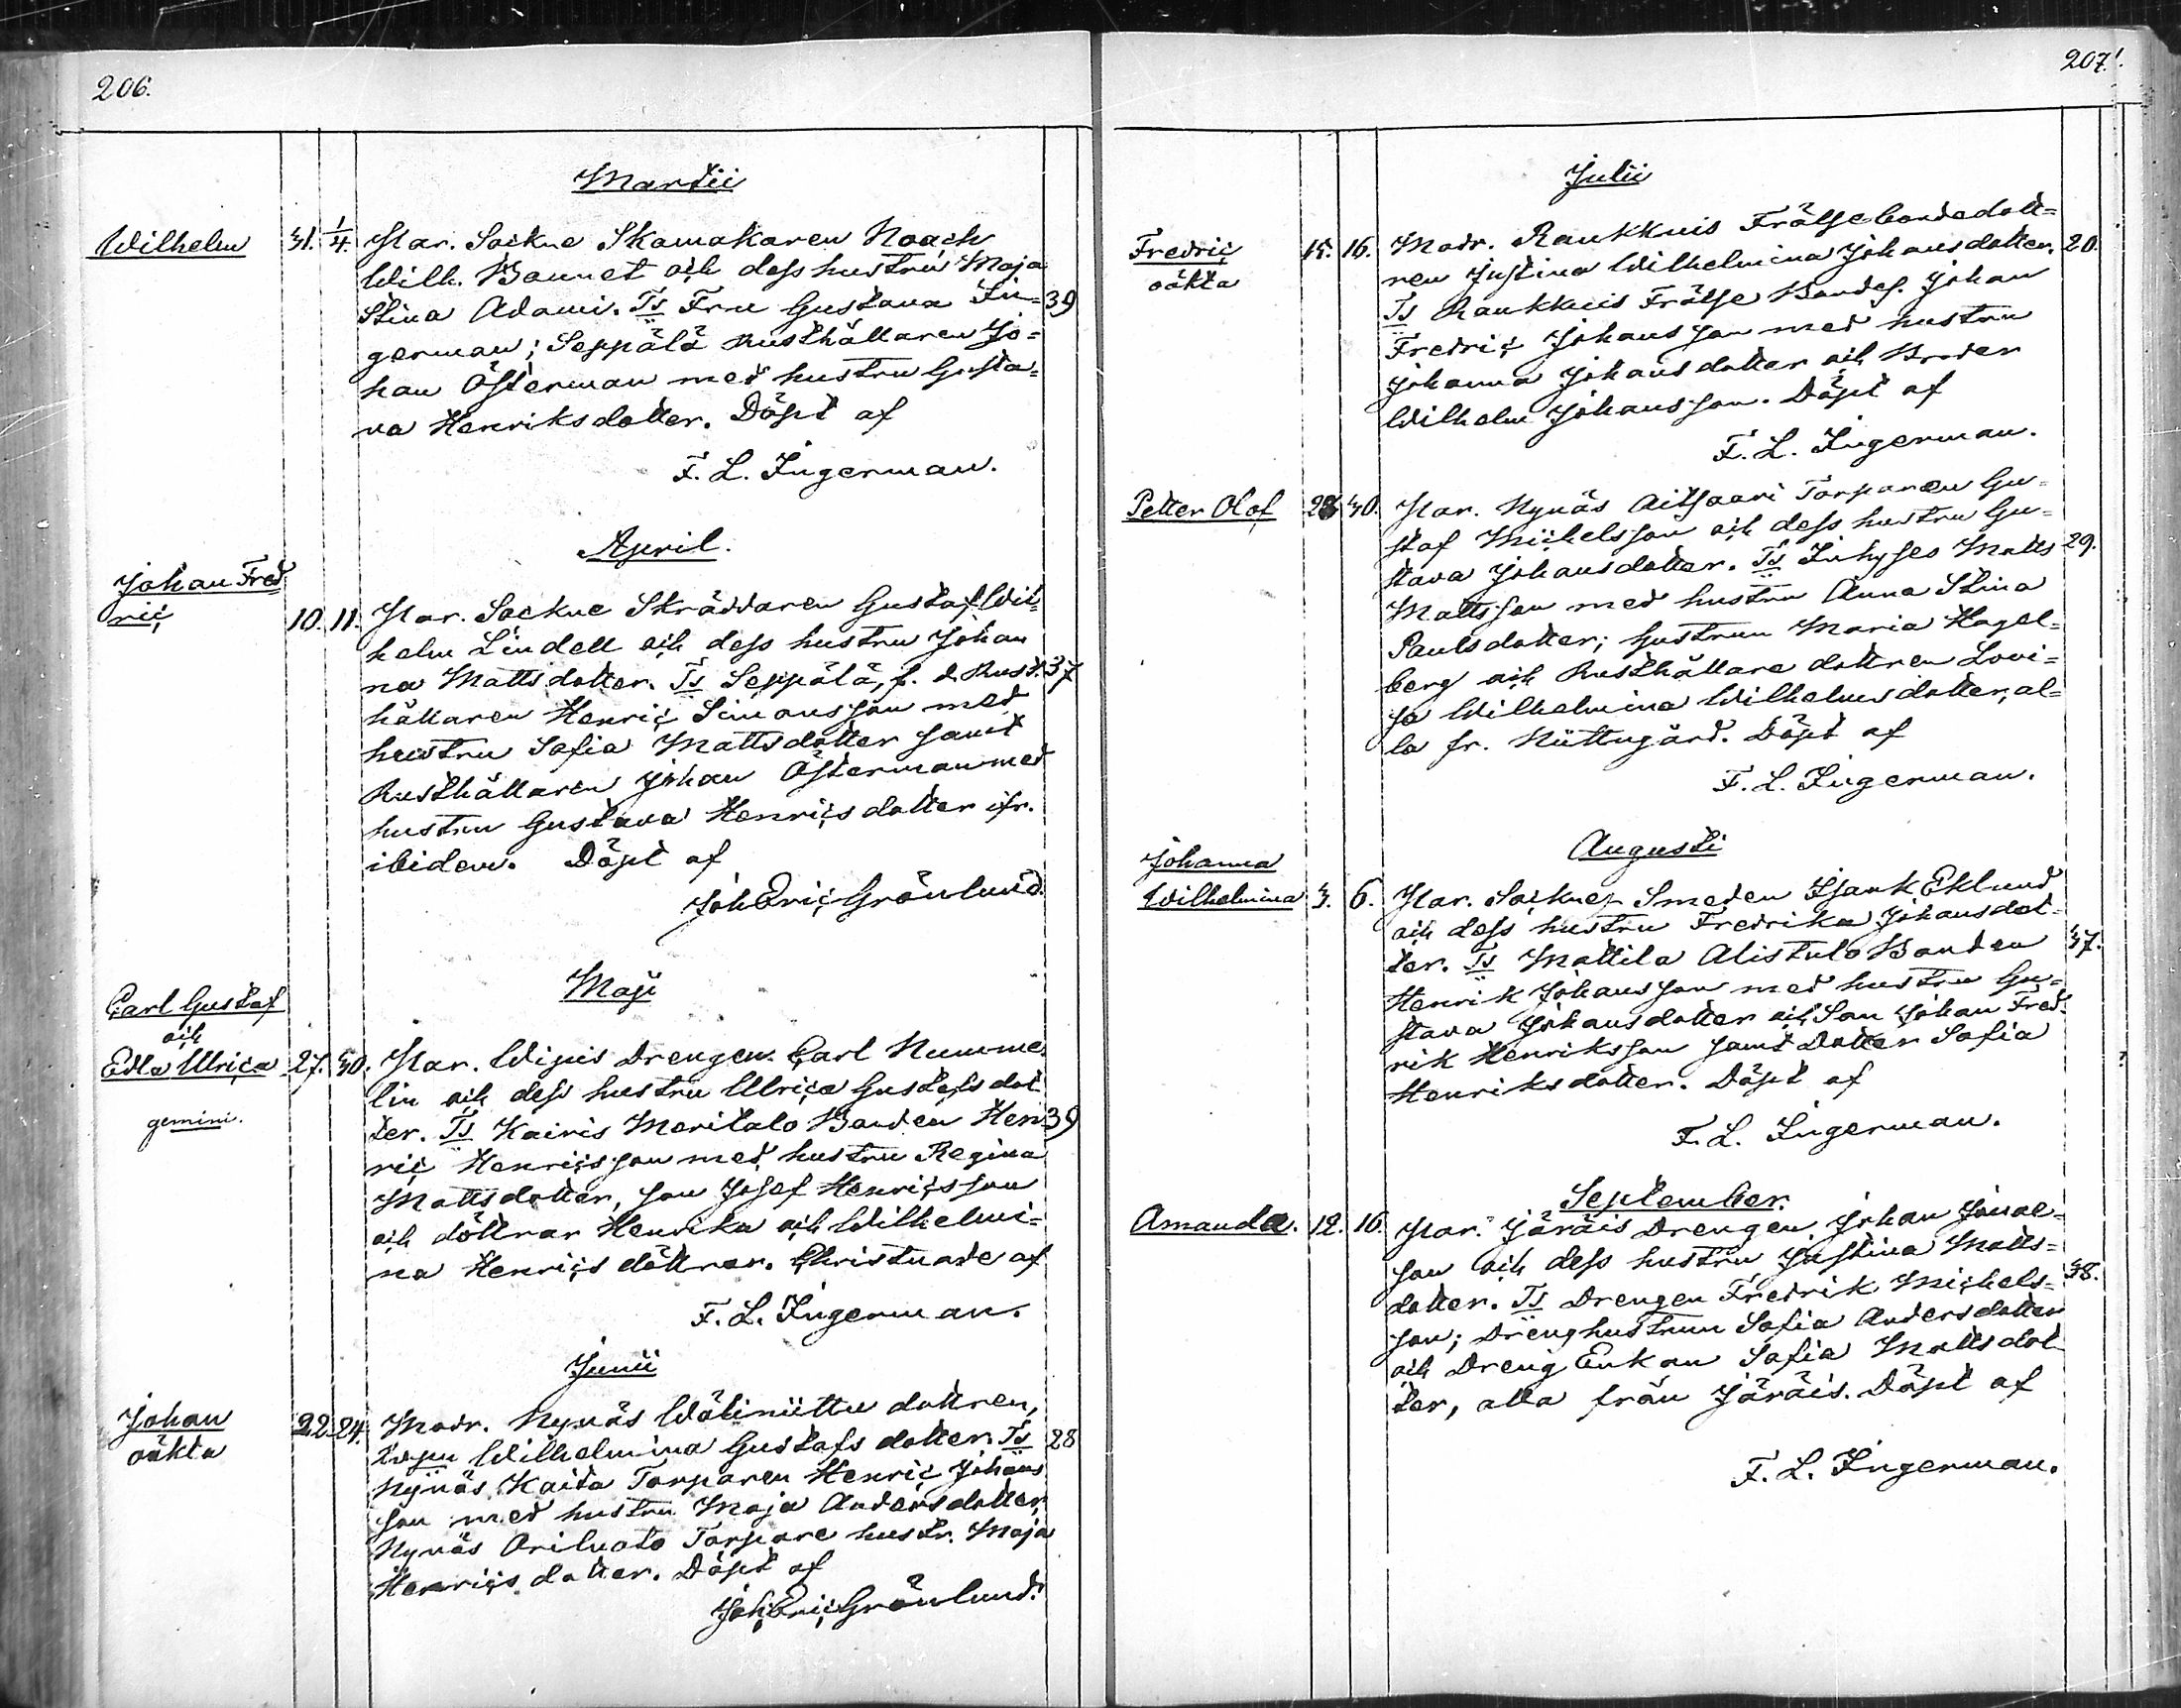 206.
Martii
Wilhelm 31. 1/4. Par. Sockne Skomakaren Noach
Wilh. Bonnet och dess hustru Maja
Stina Adami. Ts Fru Gustava In= 39
german; Seppälä Rusthållaren Jo=
han Österman med hustru Gusta=
va Henriksdotter. Döpt af
F. L. Ingerman.
April.
Johan Fred
ric 10. 11. Par. Sockne Skräddaren Gustaf Wil=
helm Lindell och dess hustru Johan
na Mattsdotter. Ts Seppälä, f. d. Rust= 37
hållaren Henric Simonsson med
hustru Sofia Mattsdotter samt
Rusthållaren Johan Österman med
hustru Gustava Henricsdotter ifr.
ibidem. Döpt af
Joh Eric Grönlund.
Maji
Carl Gustaf
och
Edla Ulrica 27. 30. Par. Wipis Drengen Carl Numme
lin och dess hustru Ulrica Gustafsdot
ter. Ts Kairis Meritalo Bonden Hen 39
ric Henricsson med hustru Regina
gemini.
Mattsdotter, son Josef Henricsson
och döttrar Henrika och Wilhelmi=
na Henrics döttrar. Christnade af
F. L. Ingerman.
Junii
Johan 22. 24. Modr. Nynäs Wäliniittu dottren,
oäkta
Wilhelmina Gustafs dotter. Ts 28
Nynäs Kaita Torparen Henric Johans
son med hustru Maja Andersdotter
Nynäs Ariluoto Torpare hustr. Maja
Henrics dotter. Döpt af
Joh Eric Grönlund.
207.
Julii
Fredric 15. 16. Modr. Raukkuis Frälsebondedott=
oäkta
ren Justina Wilhelmina Johansdotter. 20.
Ts Raukkuis Frälse Bondes. Johan
Fredric Johansson med hustru
Johanna Johansdotter och Broder
Wilhelm Johansson. Döpt af
F. L. Ingerman.
Petter Olof 30. Par. Nynäs Aitsaari Torparen Gu=
staf Michelsson och dess hustru Gu=
stava Johansdotter. Ts Inhyses Matts 29.
Mattsson med hustru Anna Stina
Paulsdotter; hustrun Maria Hagel=
berg och Rusthållare dottren Lovi=
sa Wilhelmina Wilhelmsdotter, al=
la fr. Niittugård. Döpt af
F. L. Ingerman.
Augusti
Johanna
Wilhelmina 3. 6. Par. Sockne Smeden Isaak Eklund
och dess hustru Fredrika Johansdot=
ter. Ts Mattila Alistulo Bonden 37.
Henrik Johansson med hustru Gu=
stava Johansdotter och Son Johan Fred=
rik Henriksson samt Dotter Sofia
Henriksdotter. Döpt af
F. L. Ingerman.
September.
Amanda. 12. 16. Par. Järäis Drengen Johan Jonae=
son och dess hustru Justina Matts=
dotter. Ts Drengen Fredrik Michels= 38.
son; Drenghustrun Sofia Andersdotter
och Dreng Enkan Sofia Mattsdot
ter, alla från Järäis. Döpt af
F. L. Ingerman.